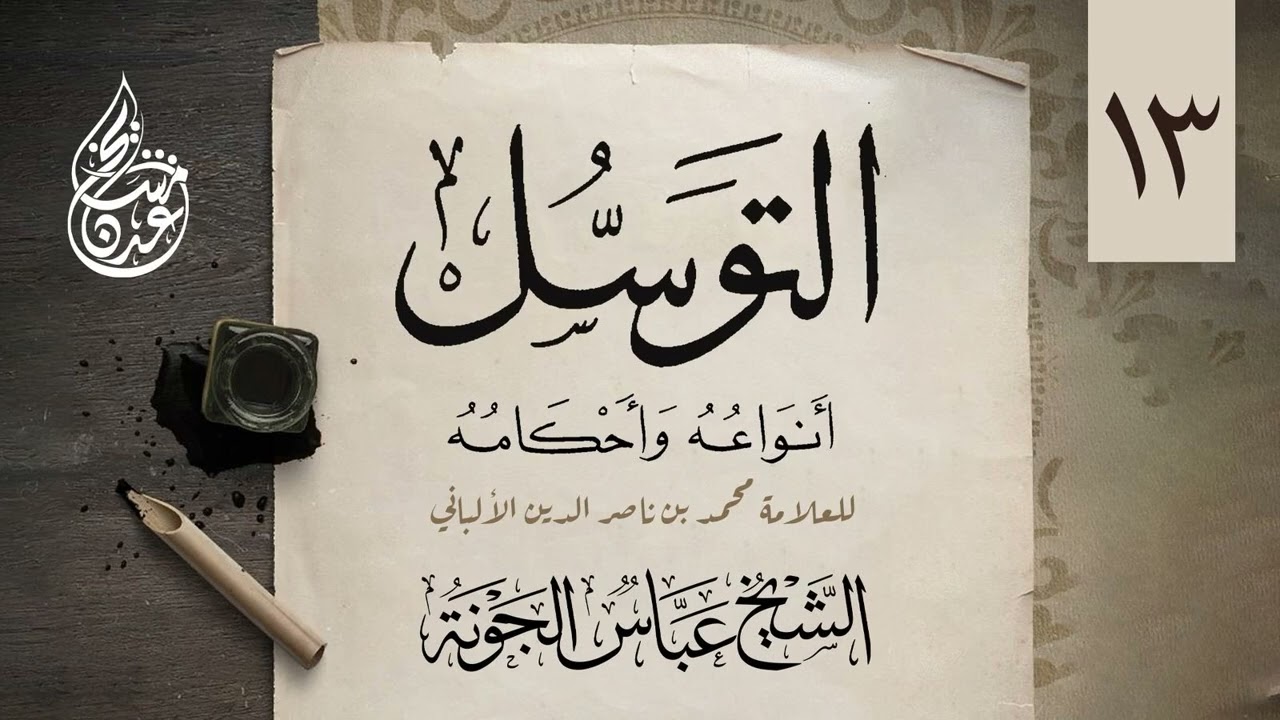 ١٣
مشايخ عدن
التَوَسُّل
أَنَوَاعُهُ وَأَحْكَامُهُ
للعلامة محمد بن ناصر الدين الألباني
الشَّيْخُ عَبَّاسُ الجَوْنَةُ